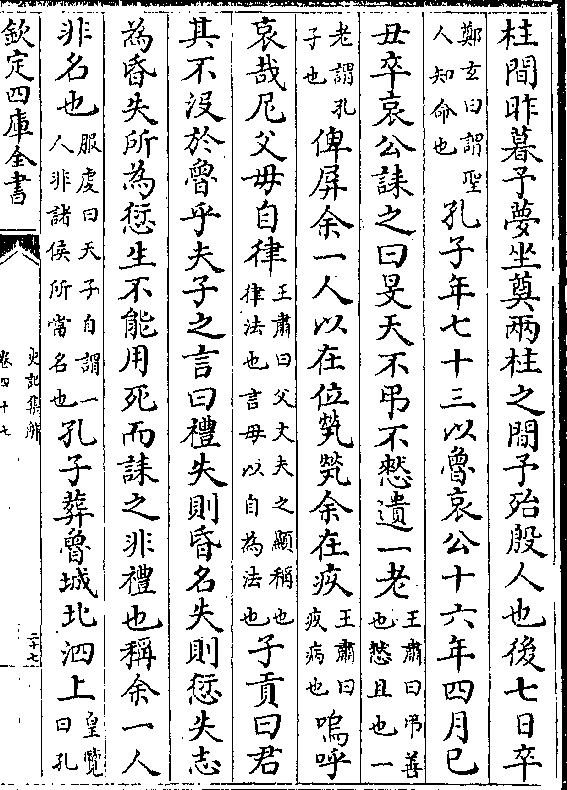 柱間昨暮予夢坐奠兩柱之間予殆殷人也後七日卒
鄭玄曰謂聖
人知命也
孔子年七十三以魯哀公十六年四月己
丑卒哀公誄之曰旻天不弔不憖遺一老
王肅曰弔善
也憖且也一
老謂孔
子也
俾屏余一人以在位煢煢余在疚
王肅曰
疚病也
嗚呼
哀哉尼父毋自律
王肅曰父丈夫之顯稱也
律法也言毋以自為法也
子貢曰君
其不沒於魯乎夫子之言曰禮失則昏名失則愆失志
為昏失所為愆生不能用死而誄之非禮也稱余一人
非名也
服虔曰天子自謂一
人非諸侯所當名也
孔子葬魯城北泗上
皇覽
曰孔
欽定四庫全書
史記集解
卷四十七
二十七